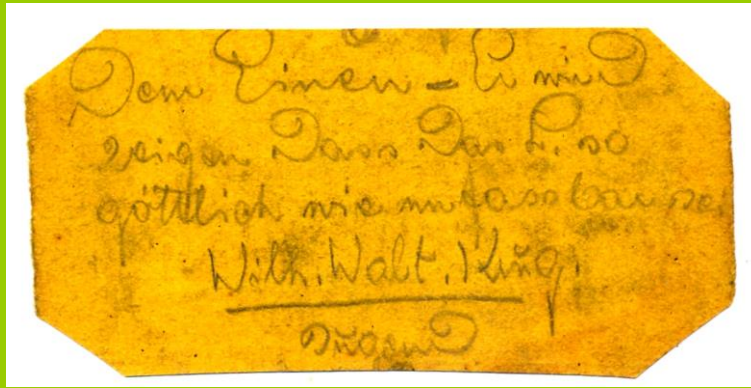 Dem Einen – Er wird
zeigen Dass Das L. so
göttlich wie unfassbar sei
Wilh. Walt. Krug.
Dugend